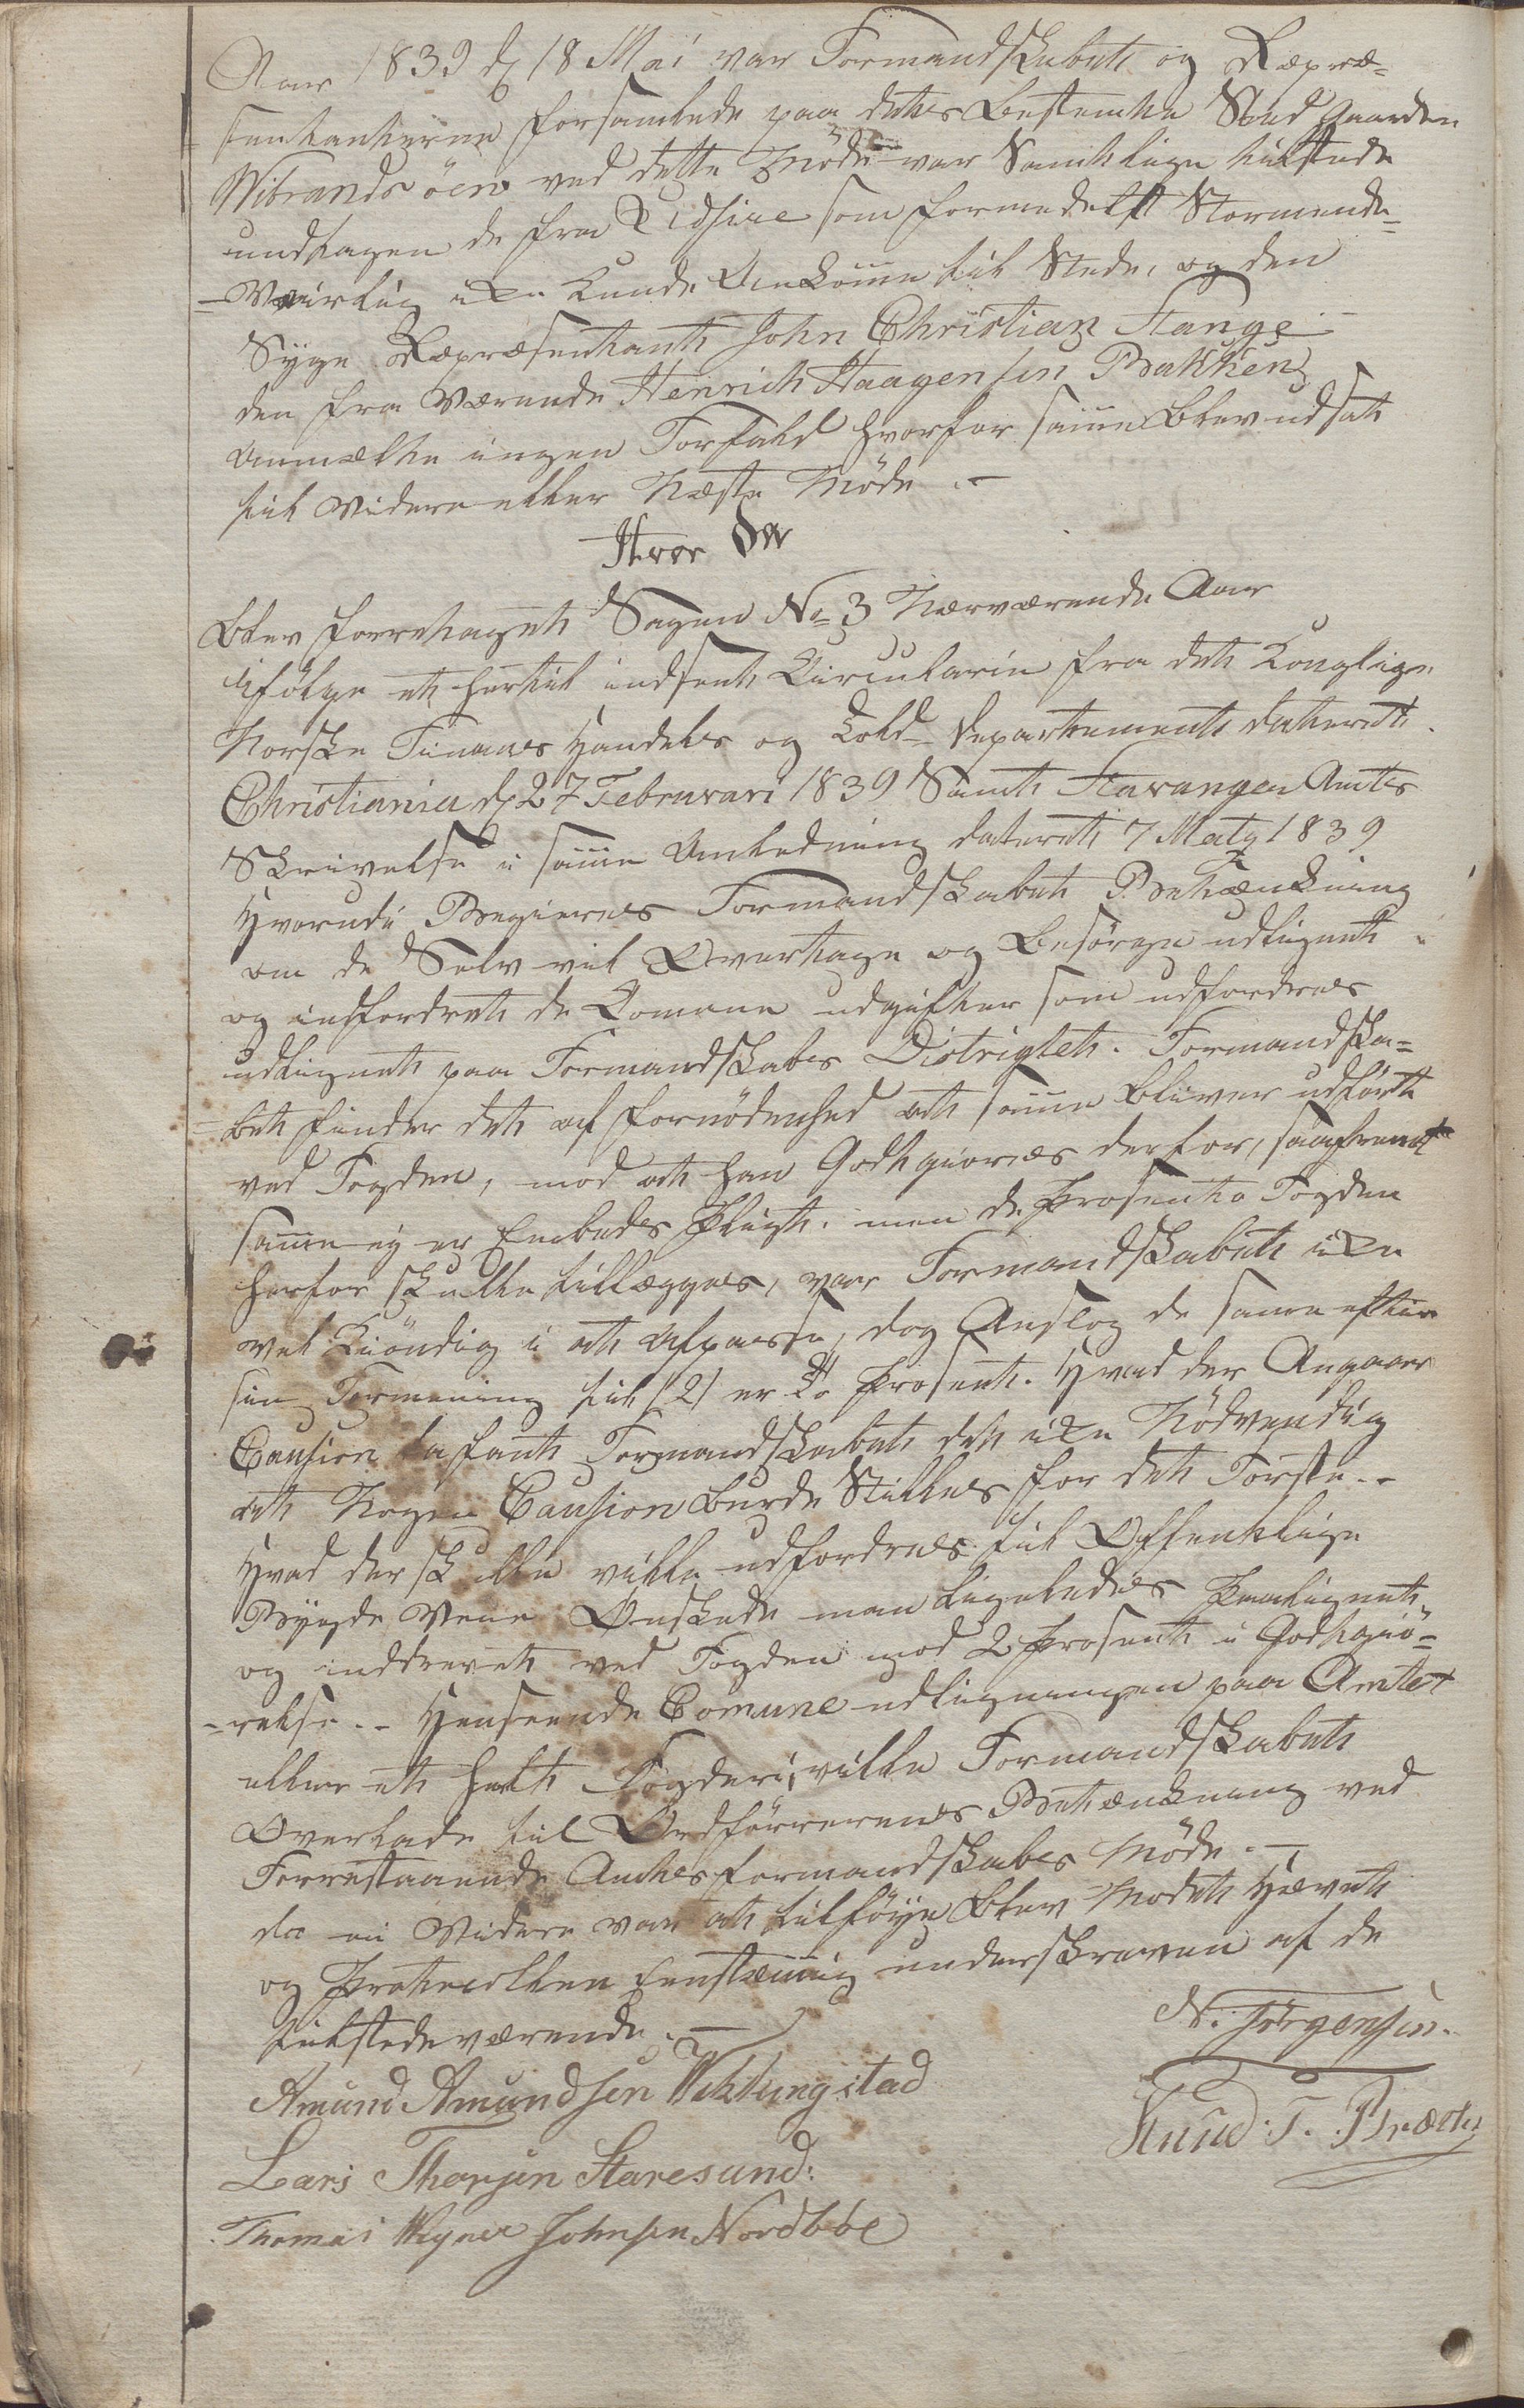 Aar 1839 d 18 Mai var Formandskabet og Repræ=
sentanterne forsamlede paa dettes Bestemte Sted Gaarden
Wibrandsöen ved dette Möde var Samtlige tilstede
undtagen de fra Udsire som formedelst Stormende=
=Veirlig ikke kunde Ankomme til Stede, og den
Syge Repræsentant John Christian Stange
den fra værende Henrich Haagensen Bakken
anmældte ingen Forfald hvorfor samme Blev udsat
til Videre eller Næste Möde.–
Hvor Da
Blev foretaget Sagen No 3 Nærværende Aar
ifölge et hertil indsent Circulærin fra det Konglige
Norske Finanes Handels og Told Departement dateret
Christiania d 27 Februari 1839 Samt Stavanger Amtes
Skrivelse i samme Anledning dateret 7 1839
Hvorudi Begieres Formandskabets Betænkning
om de Selv vil Overtage og Besörge udlignet
og indfordret de Comune udgifter som udfordres
udlignet paa Formandskabes Distrigtet. Formandska=
=bet finder det af fornödenhed at samme bliver udfört
ved Fogden, mod at han Godtgiöres derfor, saafremt
samme ej er Embeds Pligt. men de Prosento Fogden
herfor skulle tillægges, var Formandskabet ikke
vel Kiöndig i at Afpasse, dog Anslog de samme efter
sin Formening til (2) er To Prosent. Hvad der Angaar
Caution befant Formandskabet det ikke Nödvendig
at Nogen Caution burde Stilles for det Förste.–
Hvad der skulle ville udfordres til Offentlige
Bygde Veie Önskede man ligeledes Paalignet
og inddrevet ved Fogden mod 2 Prosent i Godtgiö=
=relse.– Henseende Comune udligningen paa Amtet
eller et helt Fogderi, ville Formandskabet
Overlade til Ordförerenes Betænkning ved
Forrestaaende Amtes formandskabes Möde.–
da ei Videre var at tilföye Blev Mödet Hævet
og Protocollen Eenstæmig underskreven af de
tilstedeværende.–
N: Jörgensen.
Amund Amundsen Wikhingstad
Knud. T. Bræth
Lars Thorsen Staresund:
Thomas Johnsen Nordböe